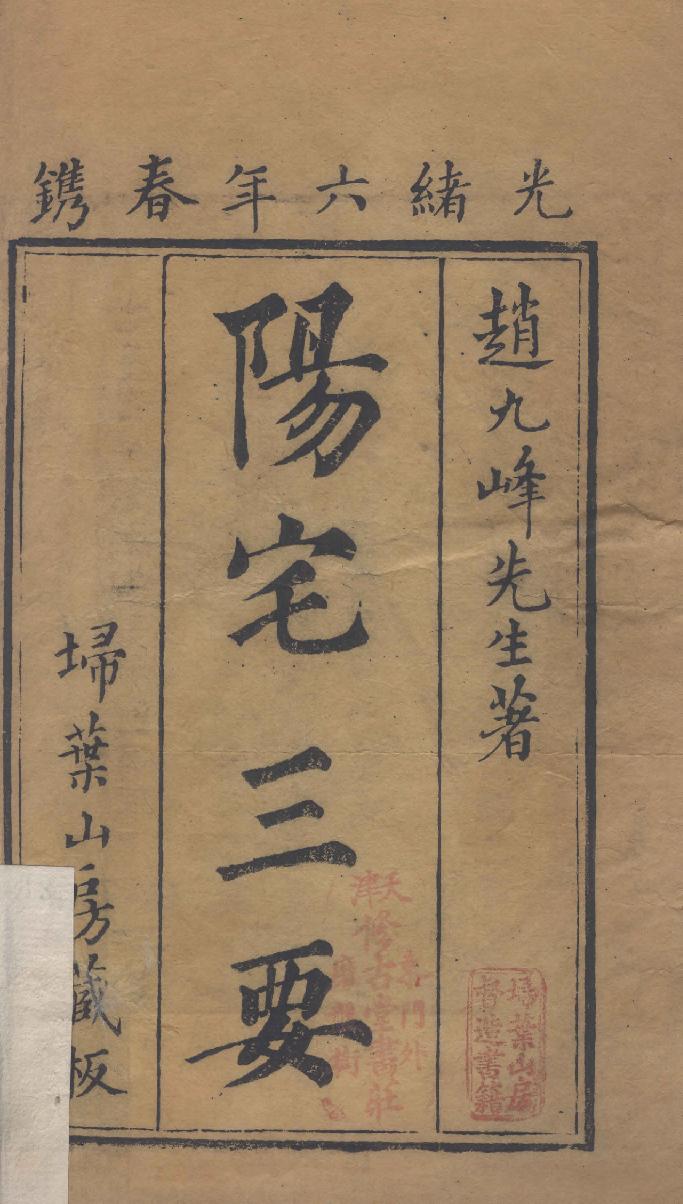 光緒六年春鐫
趙九峰先生著
陽宅三要
埽葉山房藏板
天津
東門外
修古堂書莊
埽葉山房
督造書籍